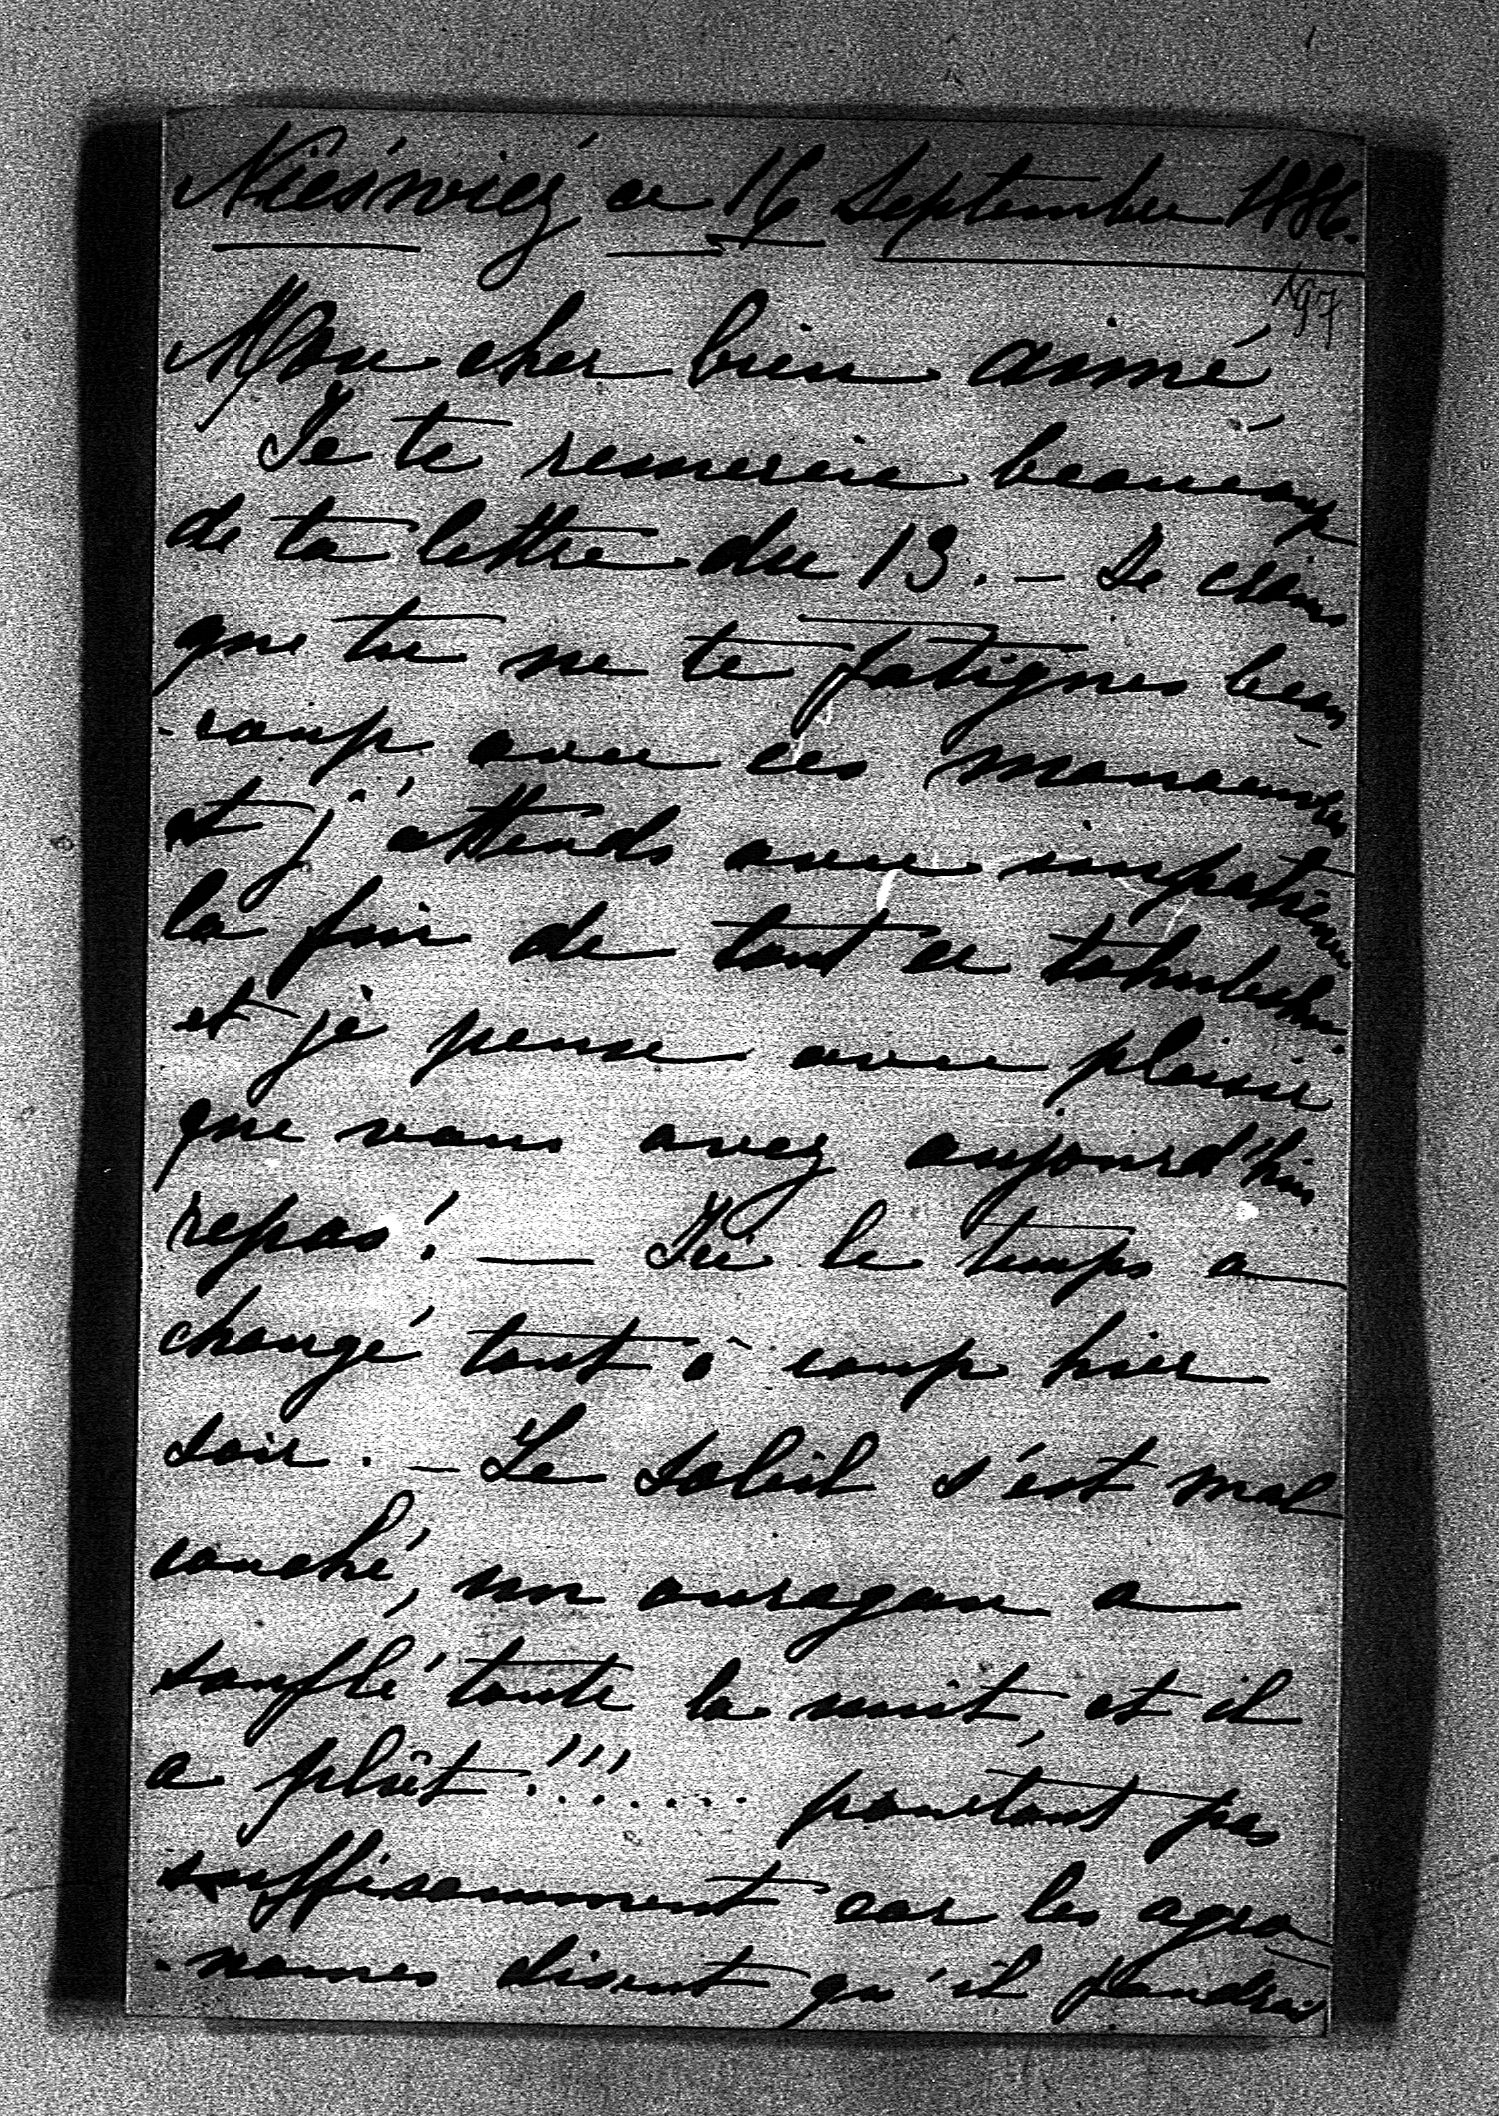 Nieśwież ce 16 Septembre 1886.
N97
Mon cher bien aimé
Je te remercie beaucoup
de ta lettre du 13. — Je crains
que tu ne te fatignes beau
-coup avec ces manoeuvres
et j'attends avec impatience
la fin de tout ce tohubohu
et je pense avec plaisir
que vous avez aujourd'hui
repos! — Ici le temps a
changé tout à coup hier
soir. — Le soleil s'est mal
couché, un ouragan a
soufflé toute la nuit, et il
a plût!!!..... pourtant pas
suffisamment car les agro
-nomes disent qu'il faudrai